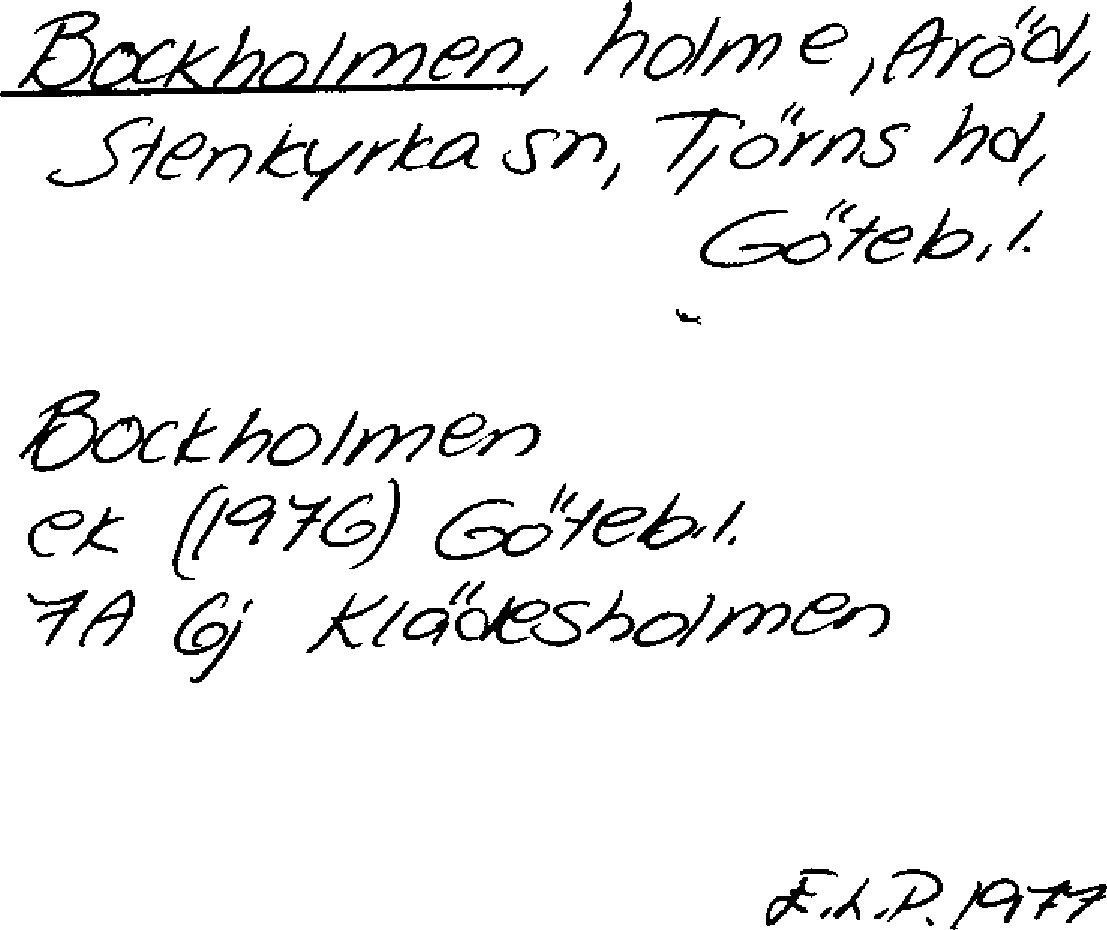 Bockholmen, holme, Aröd,
Stenkyrka sn, Tjörns hd,
Göteb. l.
Bockholmen
ek (1976) Göteb. l.
7A 6j Klädesholmen
E.L.P. 1977